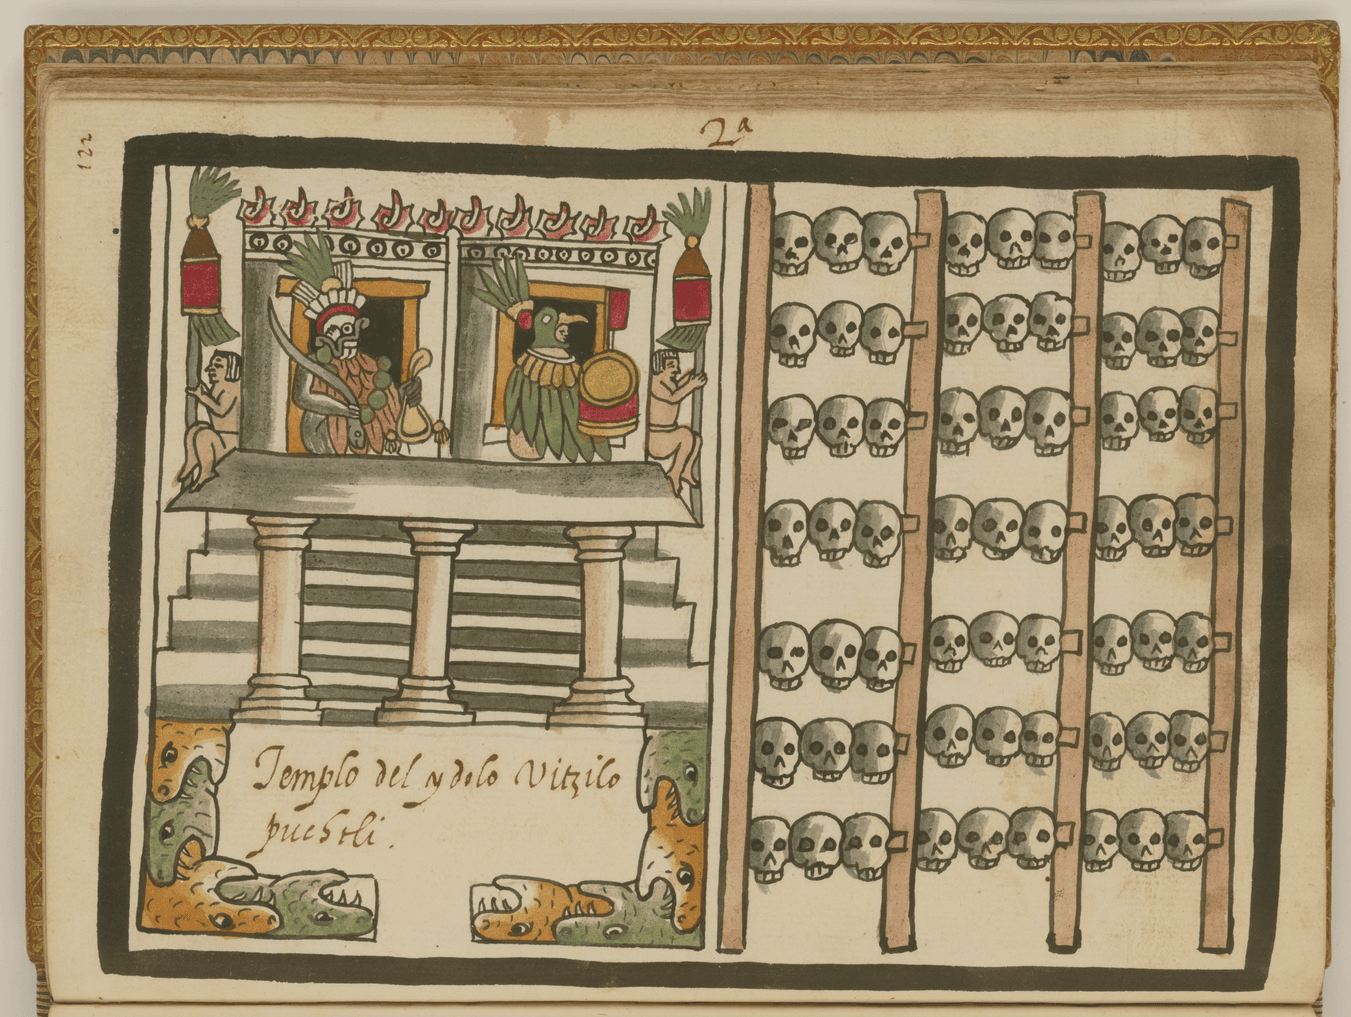 122
2ª
Templo del ydolo Vitzilo
puchtli.